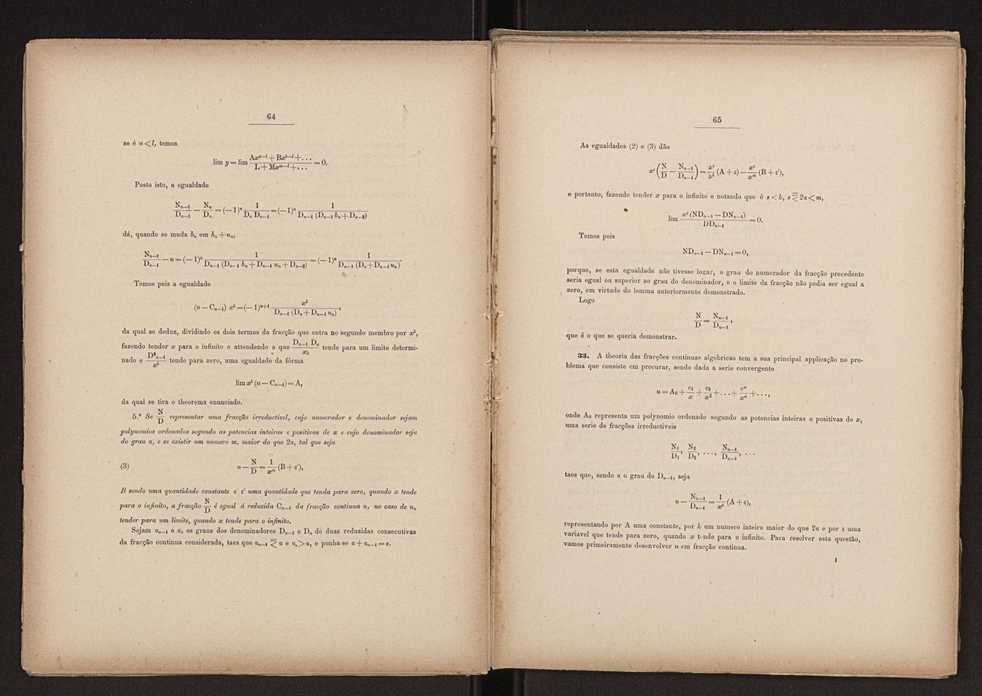 64
se é a < l, temos
lim y = lim (Ax^{a—l} + Bx^{b—l} + . . .) / (L + Mx^{m—l} + . . .) = 0.
Posto isto, a egualdade
N_{n—1}/D_{n—1} — N_n/D_n = (— 1)^n 1/(D_n D_{n—1}) = (— 1)^n 1/(D_{n—1} (D_{n—1} b_n + D_{n—2}))
dá, quando se muda b_n em b_n + u_n,
N_{n—1}/D_{n—1} — u = (— 1)^n 1/(D_{n—1} (D_{n—1} b_n + D_{n—1} u_n + D_{n—2})) = (— 1)^n 1/(D_{n—1} (D_n + D_{n—1} u_n))
Temos pois a egualdade
(u — C_{n—1}) x^k = (— 1)^{n+1} x^k/(D_{n—1} (D_n + D_{n—1} u_n)),
da qual se deduz, dividindo os dois termos da fracção que entra no segundo membro por x^k,
fazendo tender x para o infinito e attendendo a que D_{n—1} D_n/x^k tende para um limite determi-
nado e D²_{n—1}/x^k tende para zero, uma egualdade da fórma
lim x^k (u — C_{n—1}) = A,
da qual se tira o theorema enunciado.
5.º Se N/D representar uma fracção irreductivel, cujo numerador e denominador sejam
polynomios ordenados segundo as potencias inteiras e positivas de x e cujo denominador seja
do grau a, e se existir um numero m, maior do que 2a, tal que seja
(3) u — N/D = 1/x^m (B + ε'),
B sendo uma quantidade constante e ε' uma quantidade que tenda para zero, quando x tende
para o infinito, a fracção N/D é egual á reduzida C_{n—1} da fracção continua u, no caso de u,
tender para um limite, quando x tende para o infinito.
Sejam a_{n—1} e a_n os graus dos denominadores D_{n—1} e D_n de duas reduzidas consecutivas
da fracção continua considerada, taes que a_{n—1} ⋜ a e a_n > a, e ponha-se a + a_{n—1} = s.
65
As egualdades (2) e (3) dão
x^s (N/D — N_{n—1}/D_{n—1}) = x^s/x^k (A + ε) — x^s/x^m (B + ε'),
e portanto, fazendo tender x para o infinito e notando que é s < k, s ⋜ 2a < m,
lim x^s (ND_{n—1} — DN_{n—1})/DD_{n—1} = 0.
Temos pois
ND_{n—1} — DN_{n—1} = 0,
porque, se esta egualdade não tivesse logar, o grau do numerador da fracção precedente
seria egual ou superior ao grau do denominador, e o limite da fracção não podia ser egual a
zero, em virtude do lemma anteriormente demonstrado.
Logo
N/D = N_{n—1}/D_{n—1},
que é o que se queria demonstrar.
33. A theoria das fracções continuas algebricas tem a sua principal applicação no pro-
blema que consiste em procurar, sendo dada a serie convergente
u = A₀ + c₁/x + c₂/x² + . . . + c_n/x^n + . . .,
onde A₀ representa um polynomio ordenado segundo as potencias inteiras e positivas de x,
uma serie de fracções irreductiveis
N₁/D₁, N₂/D₂, . . ., N_{n—1}/D_{n—1}, . . .
taes que, sendo a o grau de D_{n—1}, seja
u — N_{n—1}/D_{n—1} = 1/x^k (A + ε),
representando por A uma constante, por k um numero inteiro maior do que 2a e por ε uma
variavel que tende para zero, quando x t nde para o infinito. Para resolver esta questão,
vamos primeiramente desenvolver u em fracção continua.